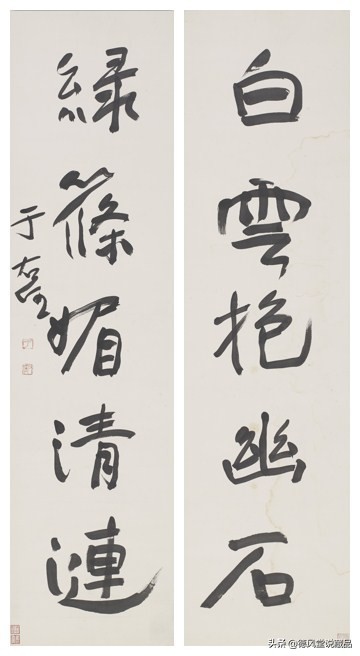 白雲抱幽石
綠篠媚清漣
于右任
头条 @德风堂说藏品